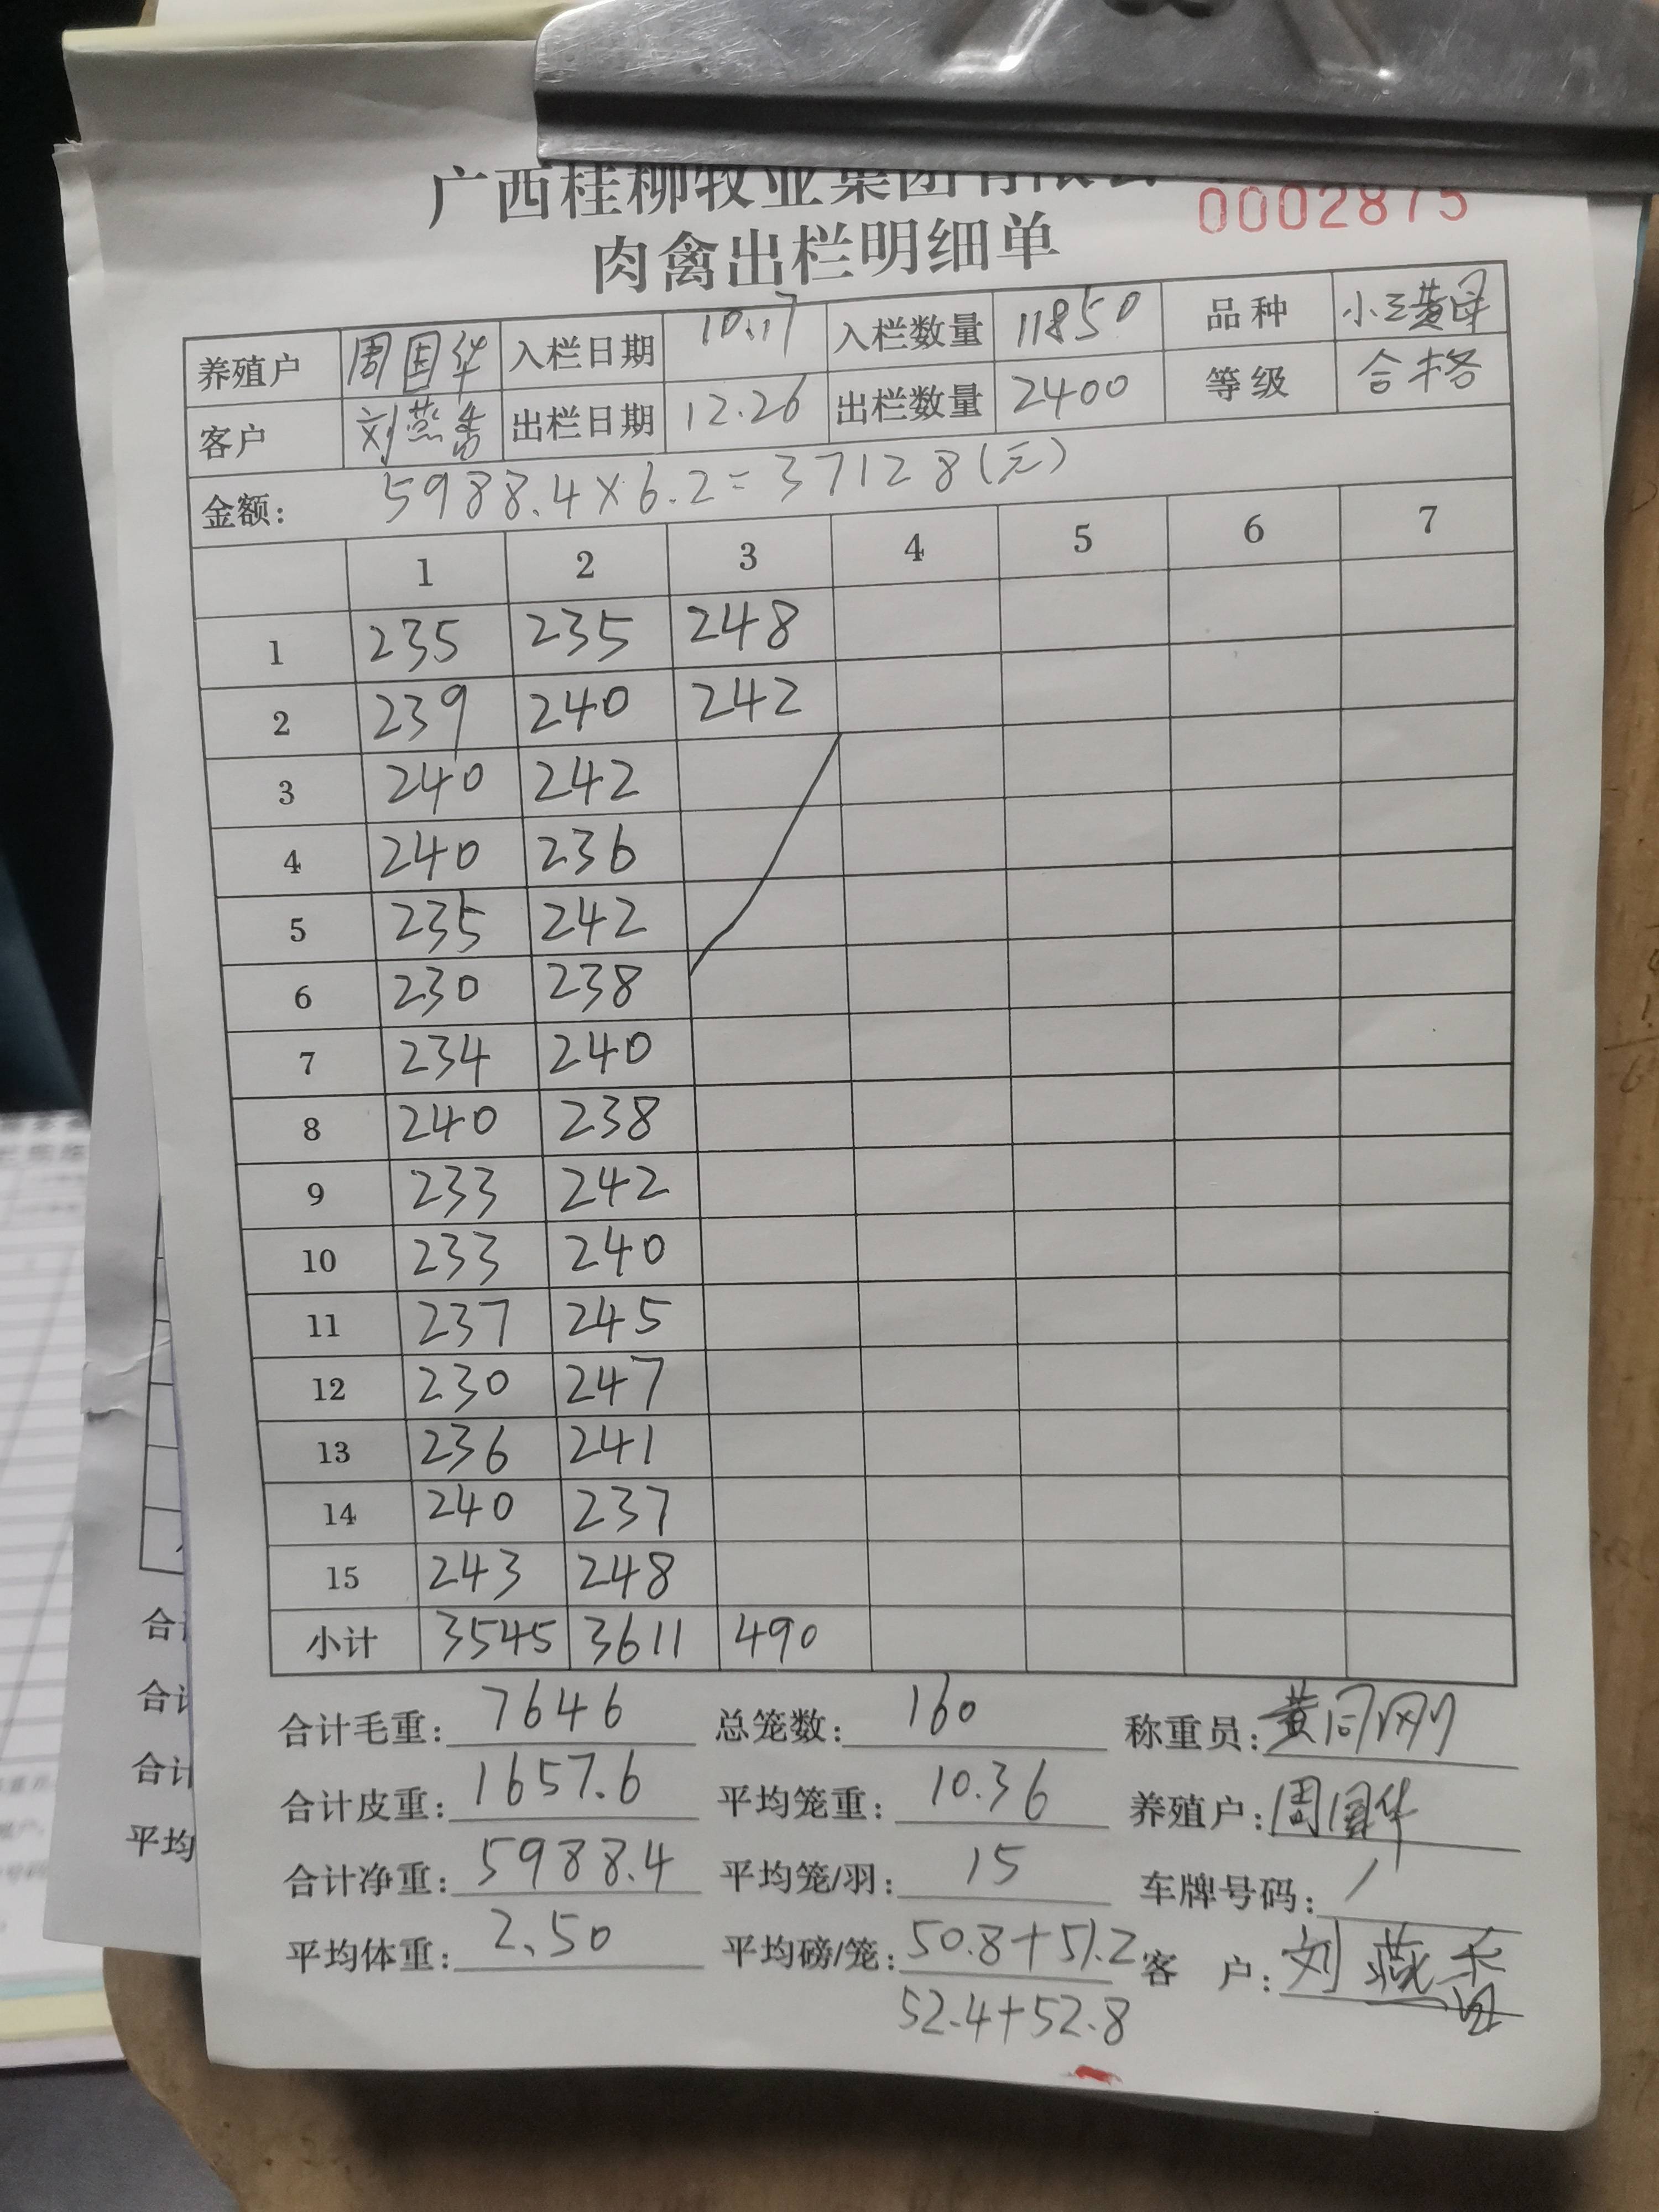 广西桂柳牧业集团有限公
0002875
肉禽出栏明细单
养殖户 周国华 入栏日期 10.17 入栏数量 11850 品种
客户 刘燕香 出栏日期 12.26 出栏数量 2400 等级 合格
金额: 5988.4×6.2=37128(元)
1 2 3 4 5 6 7
1 235 235 248
2 239 240 242
3 240 242
4 240 236
5 235 242
6 230 238
7 234 240
8 240 238
9 233 242
10 233 240
11 237 245
12 230 247
13 236 241
14 240 237
15 243 248
小计 3545 3611 490
合计毛重: 7646 总笼数: 160 称重员:
合计皮重: 1657.6 平均笼重: 10.36 养殖户: 周国华
合计净重: 5988.4 平均笼/羽: 15 车牌号码: /
平均体重: 2.50 平均磅/笼: 50.8+51.2 客 户: 刘燕香
52.4+52.8
合
合计
合计
平均